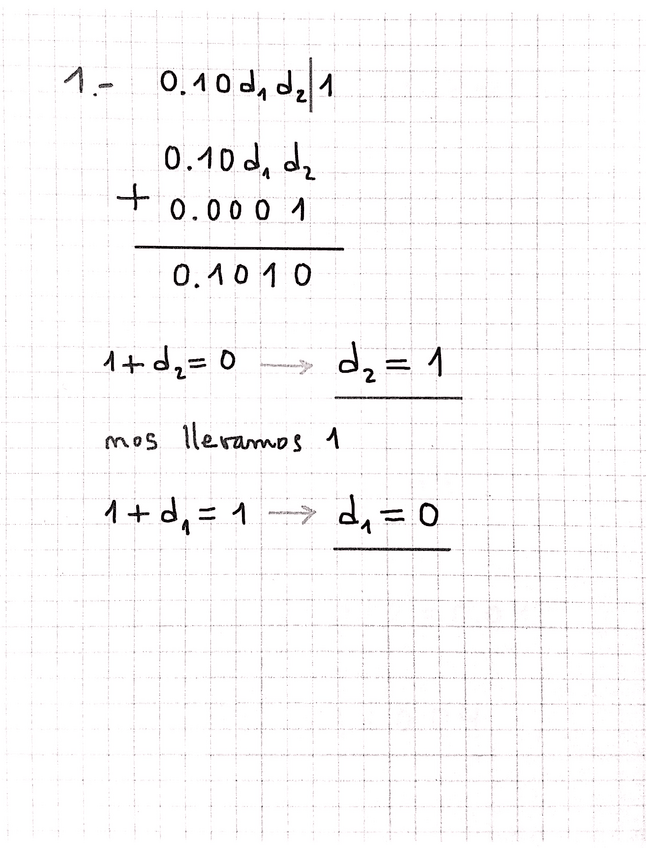 1.- 0.10d₁d₂|1
0.10d₁d₂
+ 0.0001
0.1010
1+d₂=0 → d₂=1
mos llevamos 1
1+d₁=1 → d₁=0